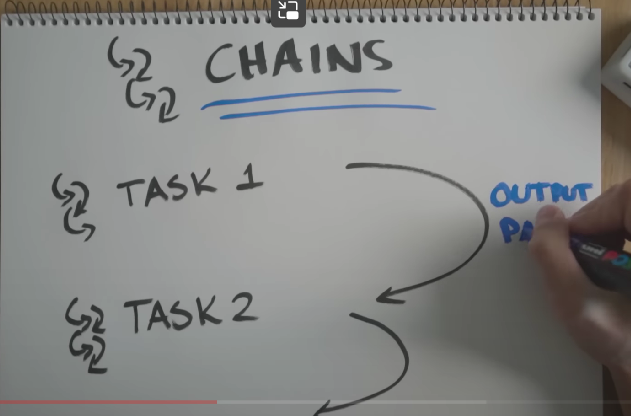 CHAINS
TASK 1
OUTPUT
TASK 2